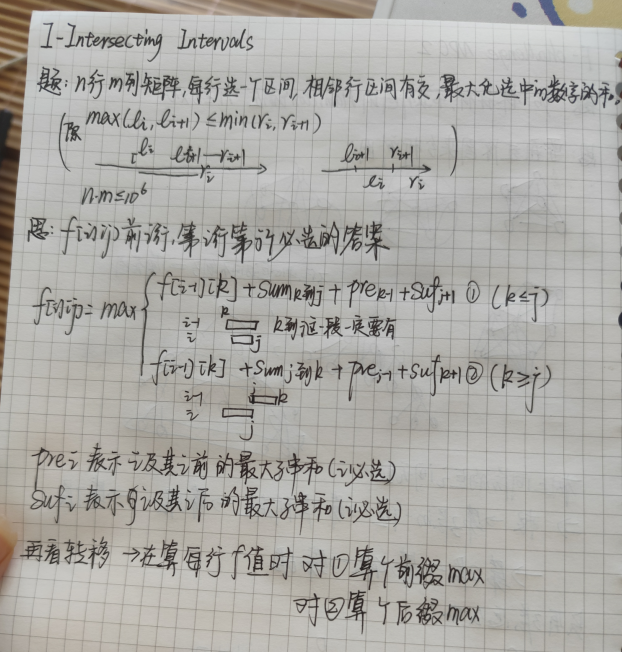 I-Intersecting Intervals
题: n行m列矩阵,每行选一个区间,相邻行区间有交,最大化选中的数字的和。
(际 max(li, li+1) ≤ min(ri, ri+1)
li li+1 ri+1 ri
li+1 ri+1 li ri)
n·m≤10^6
思: f[i][j] 前i行,第i行第j个必选的答案
f[i][j] = max { f[i-1][k] + sum k到j + pre k-1 + suf j+1 ① (k≤j)
k
i-1 k到j这一段一定要有
i j
f[i-1][k] + sum j到k + pre j-1 + suf k+1 ② (k≥j)
i-1 j k
i
j
pre i 表示i及其i前的最大子串和(i必选)
suf i 表示i及其i后的最大子串和(i必选)
再看转移 →在算每行f值时 对①算个前缀max
对②算个后缀max